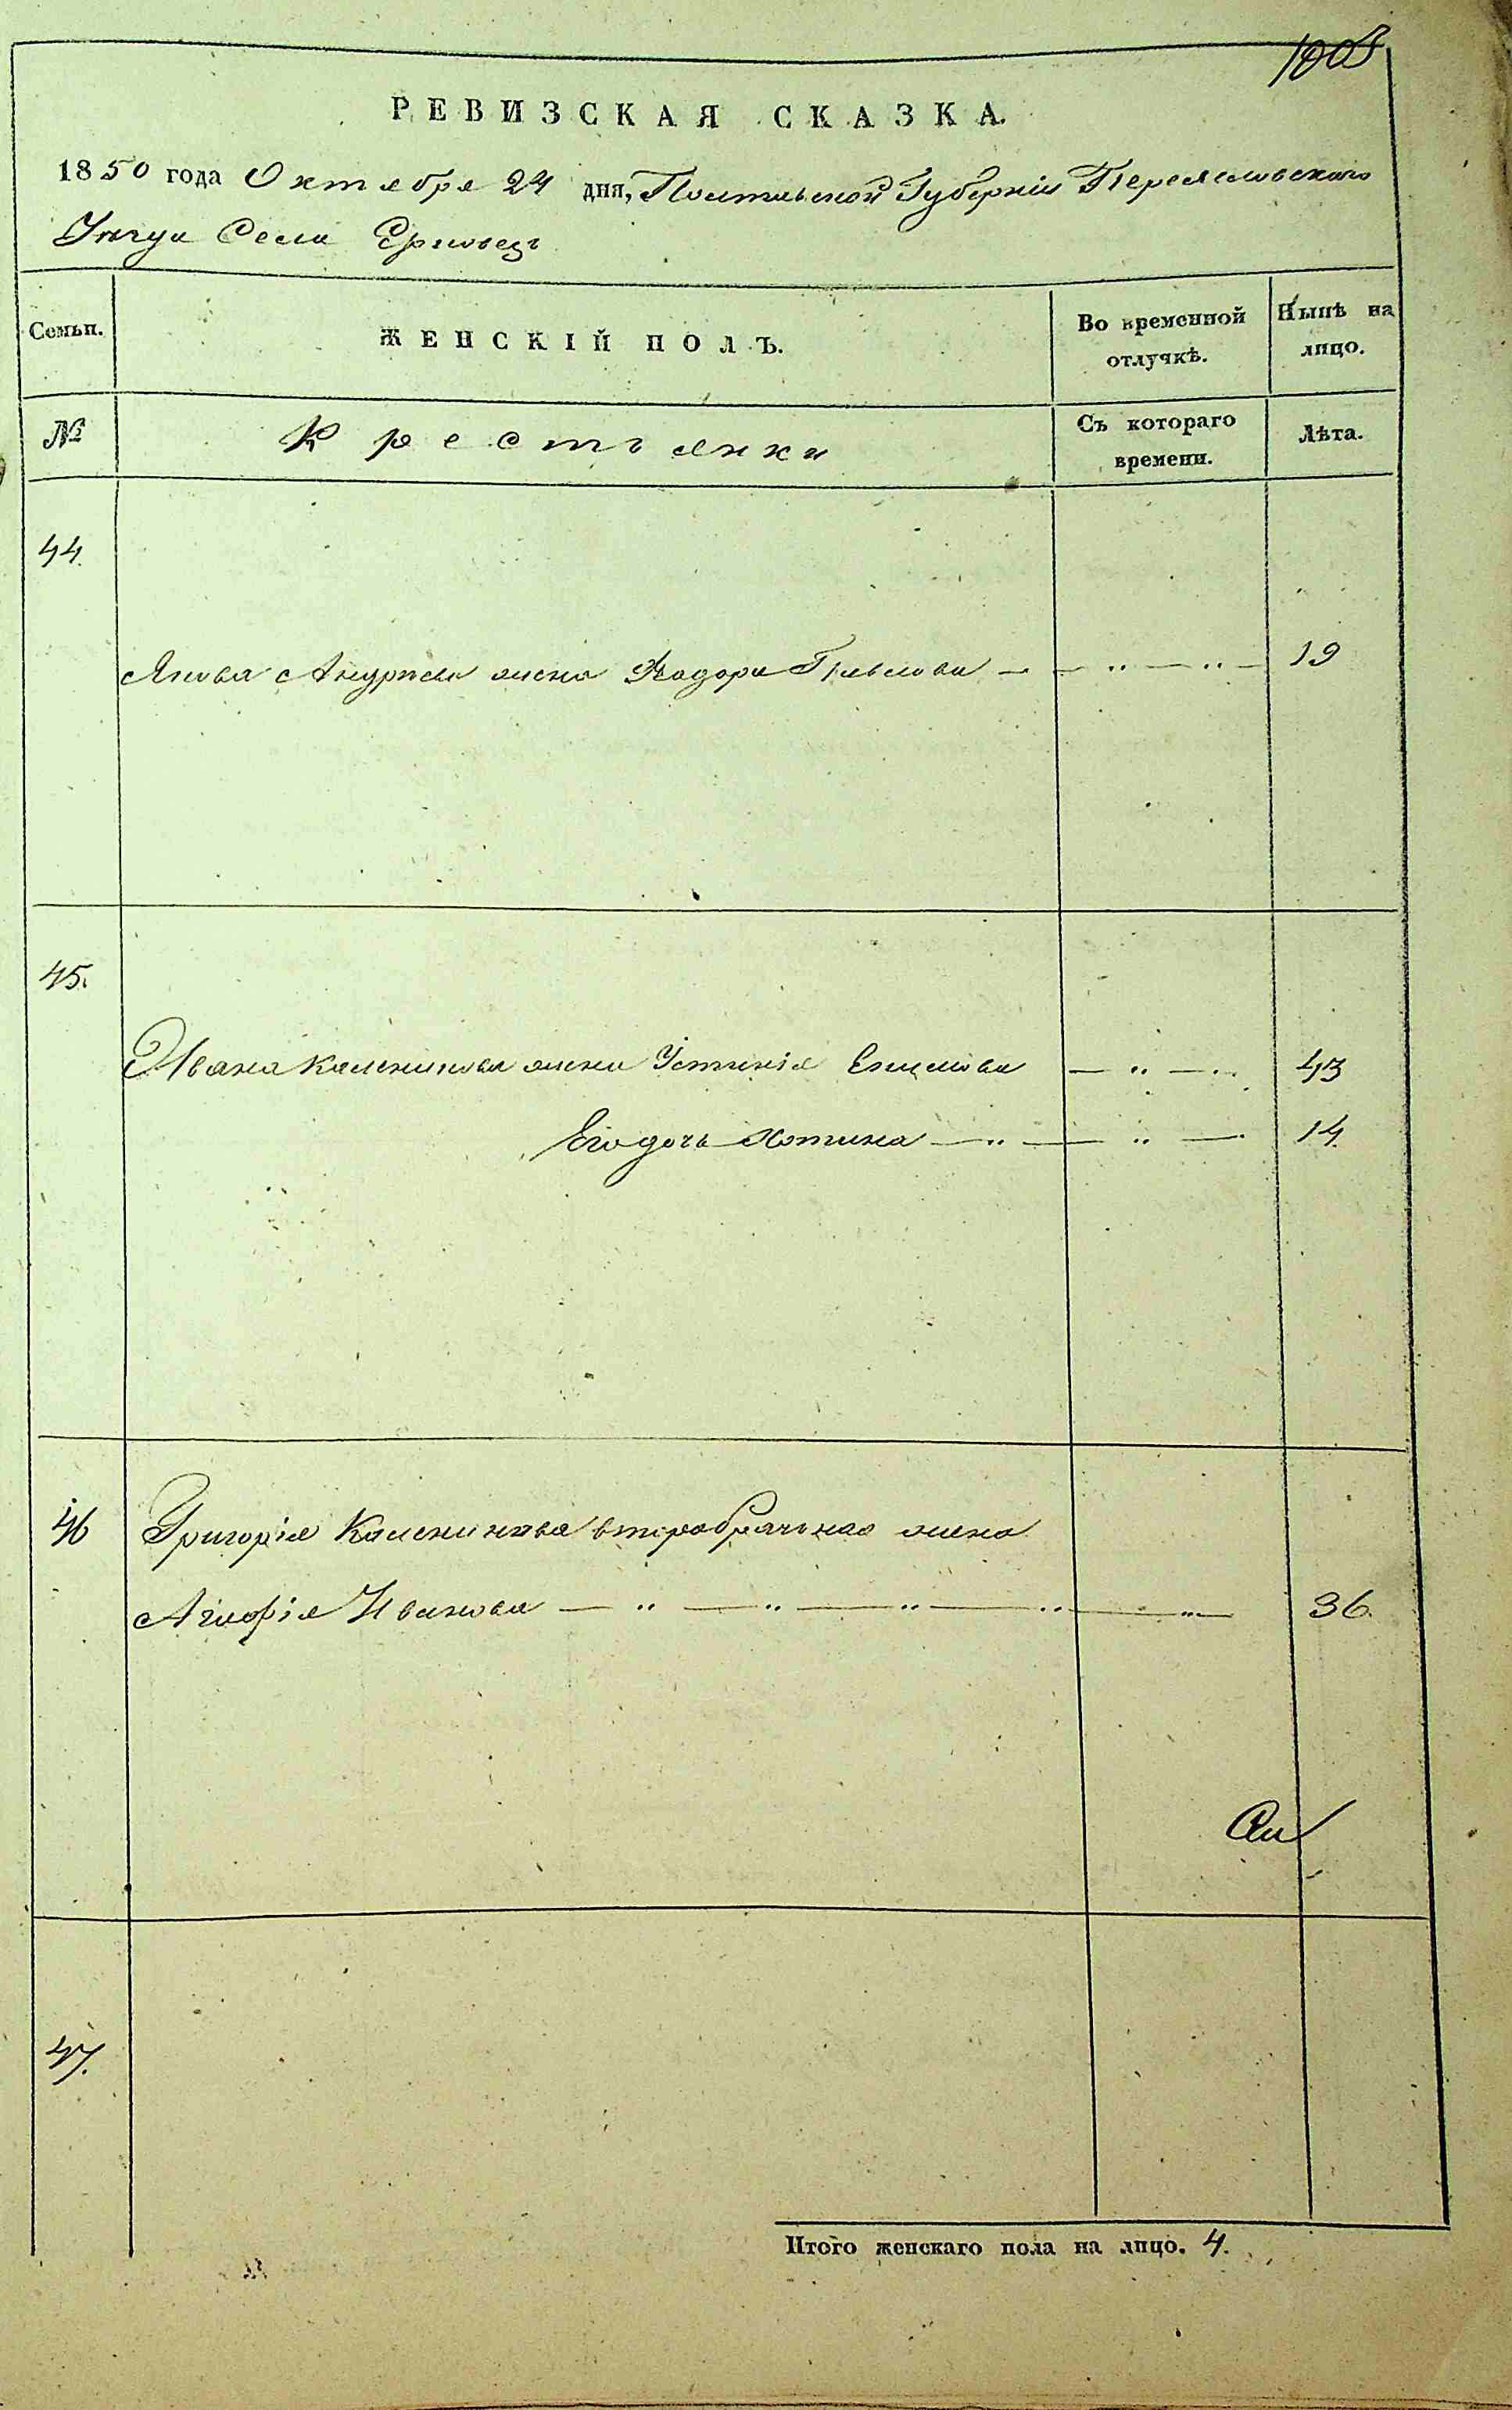 1003
РЕВИЗСКАЯ СКАЗКА.
1850 года Октября 24 дня, Полтавской Губерніи Переяславского
Уезда Села Ерковец
Семьи. ЖЕНСКІЙ ПОЛЪ. Во временной отлучкѣ. Нынѣ на лицо.
№ Крестьянки Съ котораго времени. Лѣта.
44.
Якова Андреева жена Федора Павлова — — " — " — 19
45.
Ивана Каленикова жена Устинія — " — " 43
Его дочь Хотина — " — " — 14.
46 Григорія Каленикова второбрачная жена
Агафія Иванова — " — " — " — " — " — 36.
47.
Итого женскаго пола на лицо. 4.